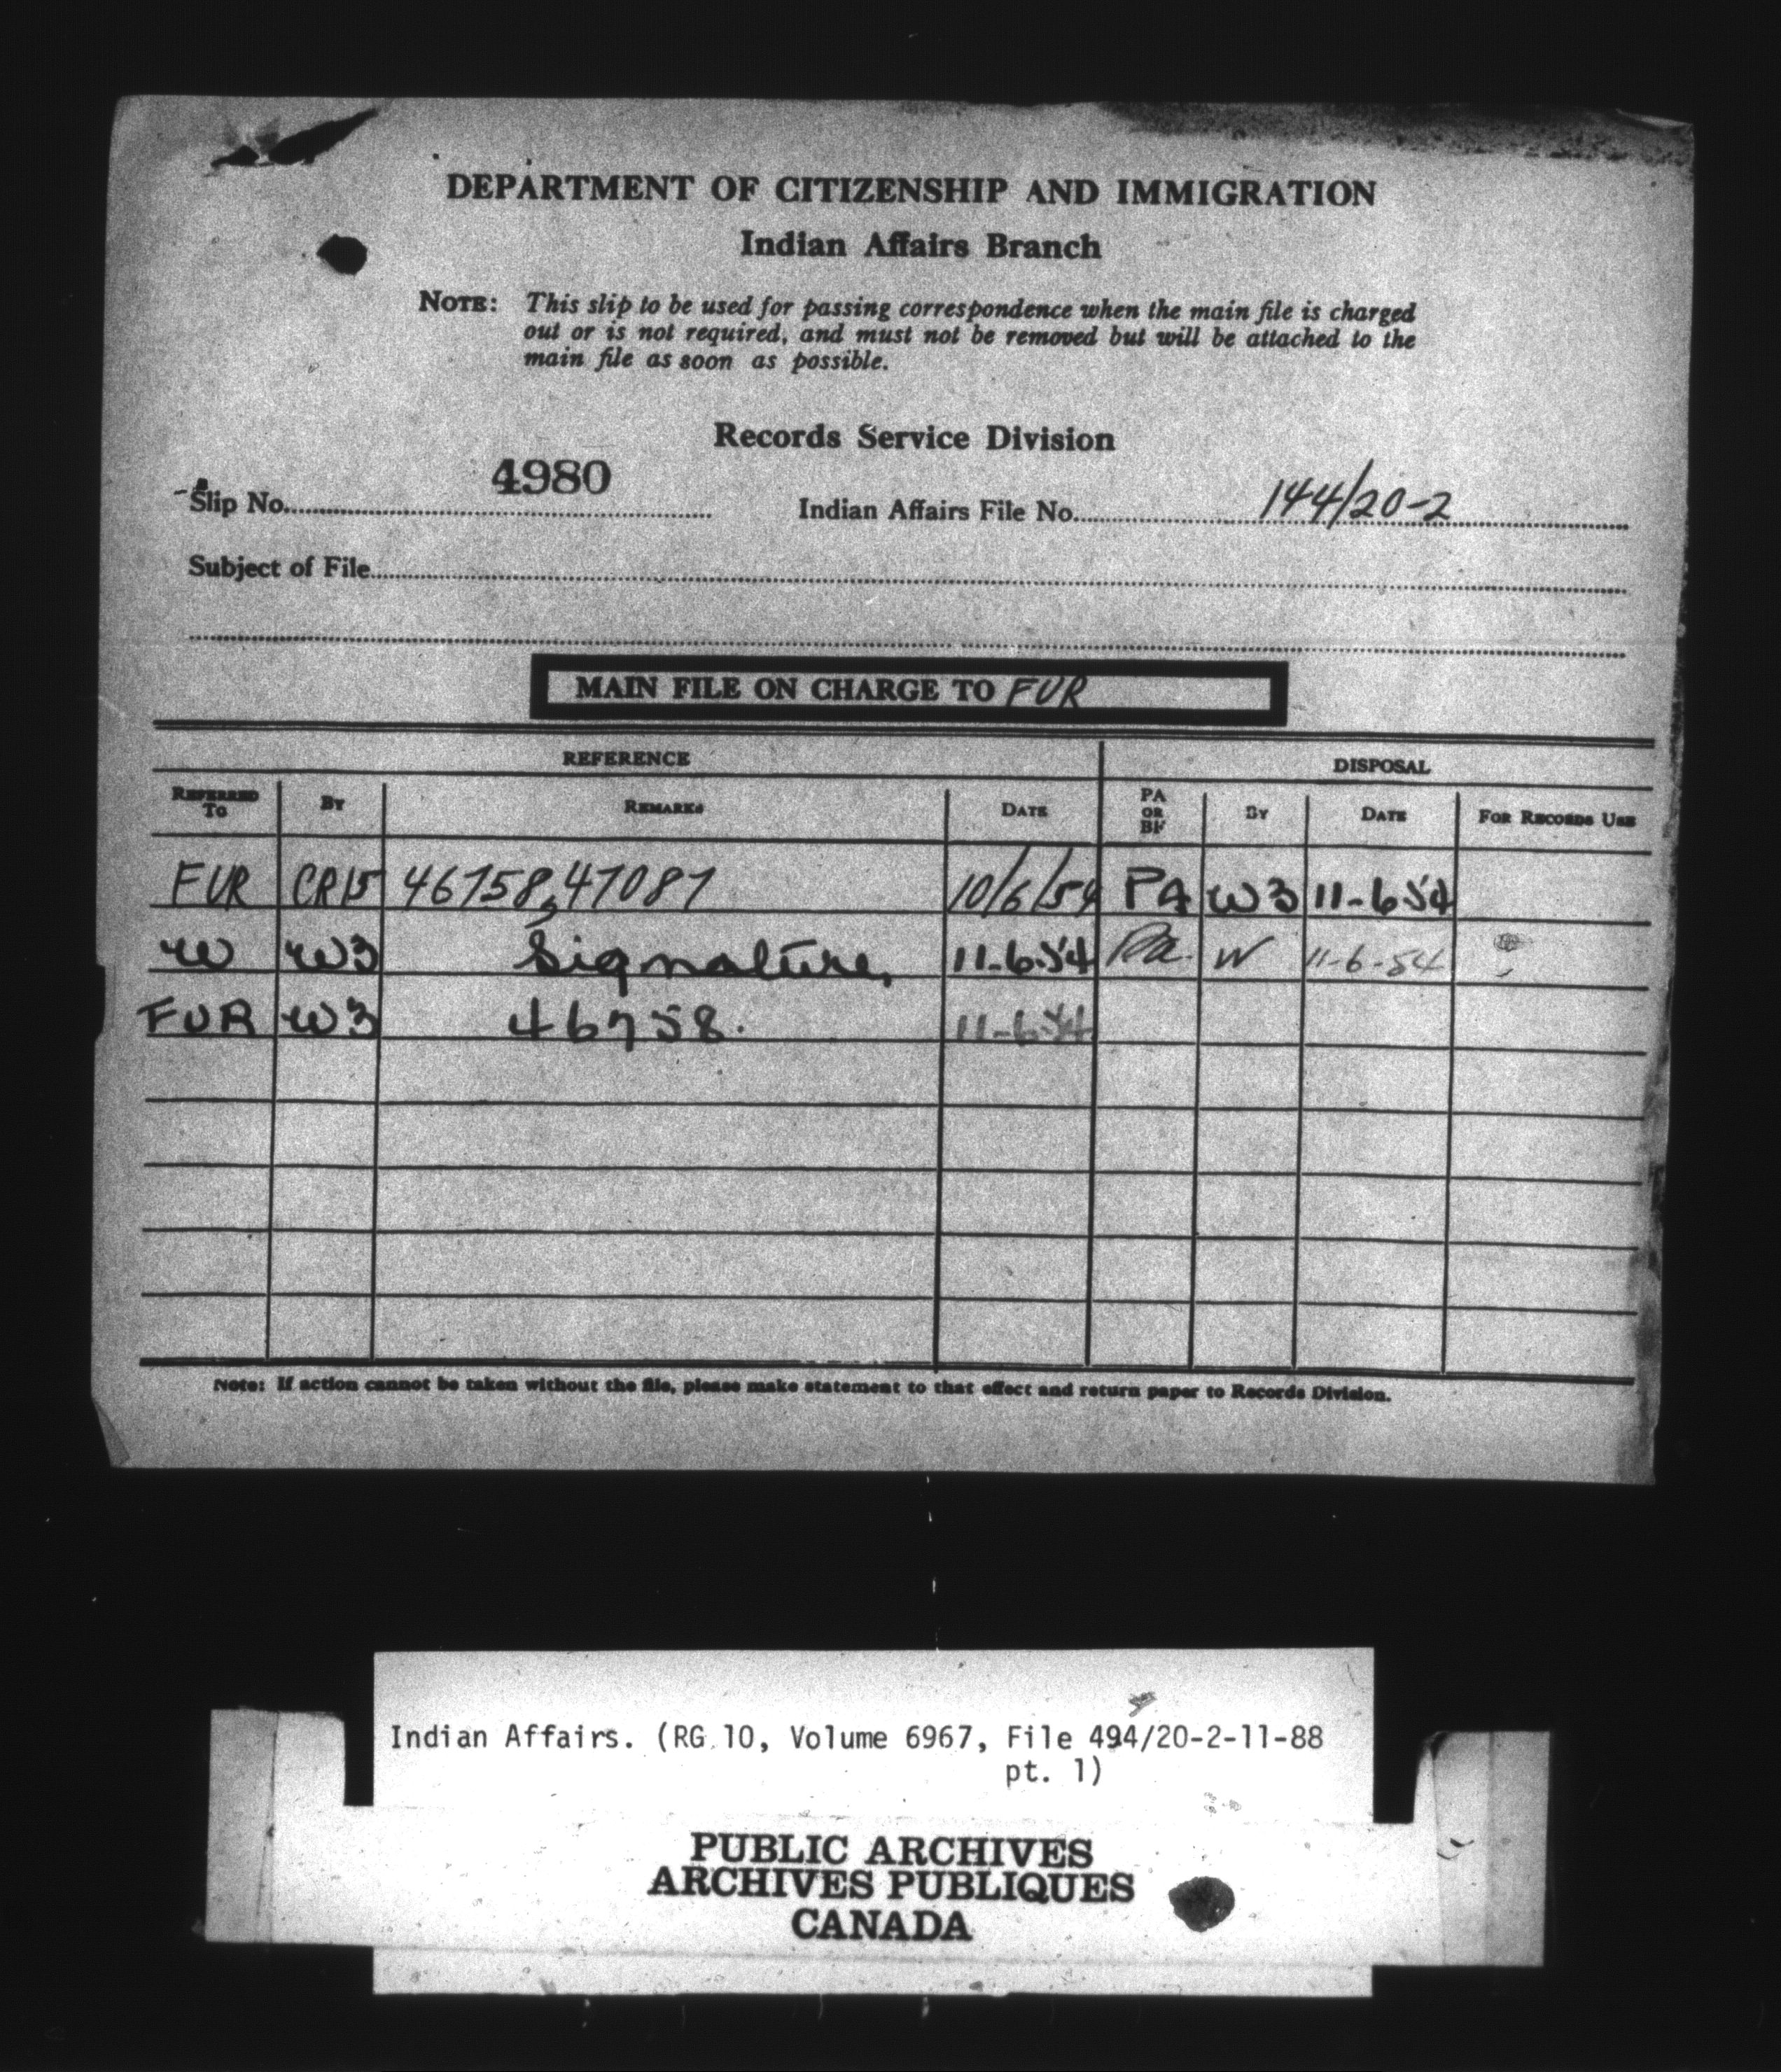 DEPARTMENT OF CITIZENSHIP AND IMMIGRATION
Indian Affairs Branch
NOTE: This slip to be used for passing correspondence when the main file is charged
out or is not required, and must not be removed but will be attached to the
main file as soon as possible.
Records Service Division
4980
Slip No. Indian Affairs File No. 144/20-2
Subject of File
MAIN FILE ON CHARGE TO FUR
REFERENCE DISPOSAL
REFERRED TO BY REMARKS DATE PA OR BF BY DATE FOR RECORDS USE
FUR CR15 46758, 47087 10/6/54 PA W3 11-6-54
W W3 Signature, 11-6-54 Pa. W 11-6-54
FUR W3 46758. 11-6-54
Note: If action cannot be taken without the file, please make statement to that effect and return paper to Records Division.
Indian Affairs. (RG 10, Volume 6967, File 494/20-2-11-88
pt. 1)
PUBLIC ARCHIVES
ARCHIVES PUBLIQUES
CANADA